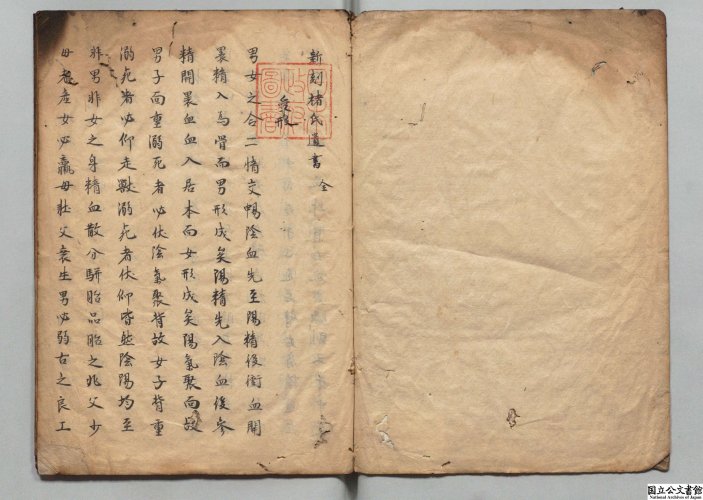 新刻褚氏遺書全
受形
男女之合二情交暢陰血先至陽精後衝血開
裹精入為骨而男形成矣陽精先入陰血後參
精開裹血血入居本而女形成矣陽氣聚面故
男子面重溺死者必伏陰氣聚背故女子背重
溺死者必仰走獸溺死者伏仰皆然陰陽均至
非男非女之身精血散分駢胎品胎之兆父少
母老產女必羸母壯父衰生男必弱古之良工
国立公文書館
National Archives of Japan